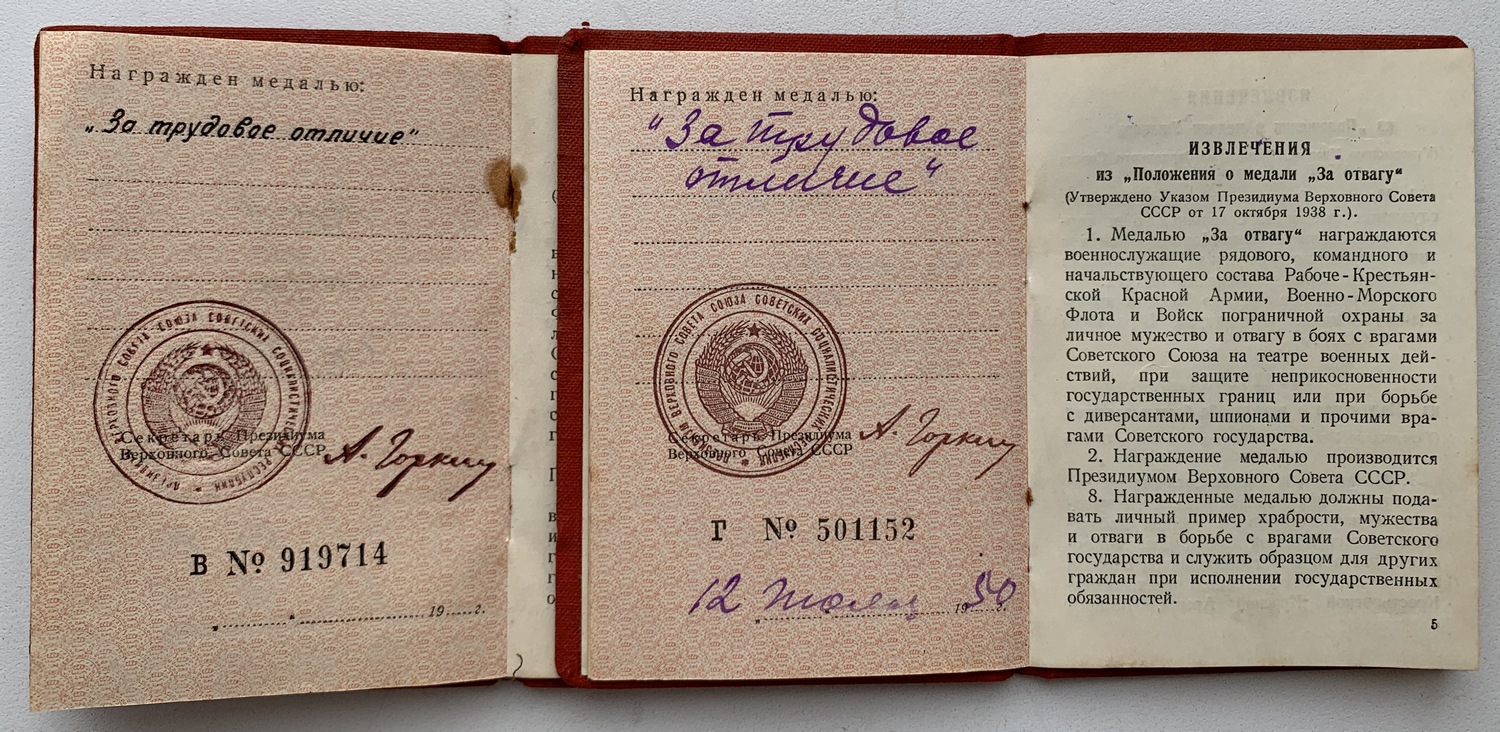 Награжден медалью:
„За трудовое отличие"
ПРЕЗИДИУМ ВЕРХОВНОГО СОВЕТА СОЮЗА СОВЕТСКИХ СОЦИАЛИСТИЧЕСКИХ РЕСПУБЛИК
Секретарь Президиума
Верховного Совета СССР
А. Горкин
В № 919714
„ “ 19 г.
Награжден медалью:
"За трудовое
отличие"
ПРЕЗИДИУМ ВЕРХОВНОГО СОВЕТА СОЮЗА СОВЕТСКИХ СОЦИАЛИСТИЧЕСКИХ РЕСПУБЛИК
Секретарь Президиума
Верховного Совета СССР
А. Горкин
Г № 501152
12 июля 1950 г.
ИЗВЛЕЧЕНИЯ
из „Положения о медали „За отвагу“
(Утверждено Указом Президиума Верховного Совета
СССР от 17 октября 1938 г.).
1. Медалью „За отвагу“ награждаются
военнослужащие рядового, командного и
начальствующего состава Рабоче-Крестьян-
ской Красной Армии, Военно-Морского
Флота и Войск пограничной охраны за
личное мужество и отвагу в боях с врагами
Советского Союза на театре военных дей-
ствий, при защите неприкосновенности
государственных границ или при борьбе
с диверсантами, шпионами и прочими вра-
гами Советского государства.
2. Награждение медалью производится
Президиумом Верховного Совета СССР.
8. Награжденные медалью должны пода-
вать личный пример храбрости, мужества
и отваги в борьбе с врагами Советского
государства и служить образцом для других
граждан при исполнении государственных
обязанностей.
5